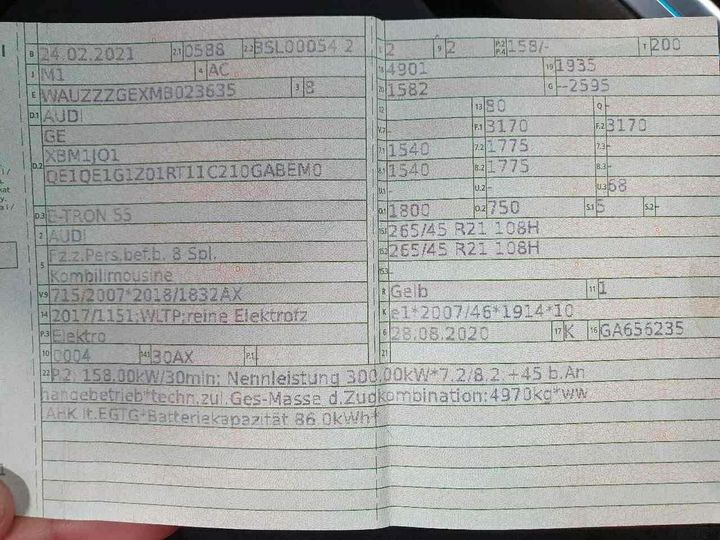 B 24.02.2021 2.1 0588 2.2 BSL00054 2
J M1 4 AC
E WAUZZZGEXMB023635 3 8
D.1 AUDI
GE
XBM1JO1
D.2 QE1QE1G1Z01RT11C210GABEM0
D.3 E-TRON 55
2 AUDI
Fz.z.Pers.bef.b. 8 Spl.
5 Kombilimousine
V.9 715/2007*2018/1832AX
14 2017/1151;WLTP;reine Elektrofz
P.3 Elektro
10 0004 14.1 30AX P.1
L 2 9 2 P.2 P.4 158/- T 200
18 4901 19 1935
20 1582 G --2595
12 13 80 Q -
V.7 - F.1 3170 F.2 3170
7.1 1540 7.2 1775 7.3 -
8.1 1540 8.2 1775 8.3 -
U.1 - U.2 - U.3 68
O.1 1800 O.2 750 S.1 5 S.2 -
15.1 265/45 R21 108H
15.2 265/45 R21 108H
15.3 -
R Gelb 11 1
K e1*2007/46*1914*10
6 28.08.2020 17 K 16 GA656235
21
22 P.2: 158.00kW/30min; Nennleistung 300,00kW*7.2/8.2.+45 b.An
hangebetrieb*techn.zul.Ges-Masse d.Zugkombination:4970kg*ww
AHK lt.EGTG*Batteriekapazität 86.0kWh*